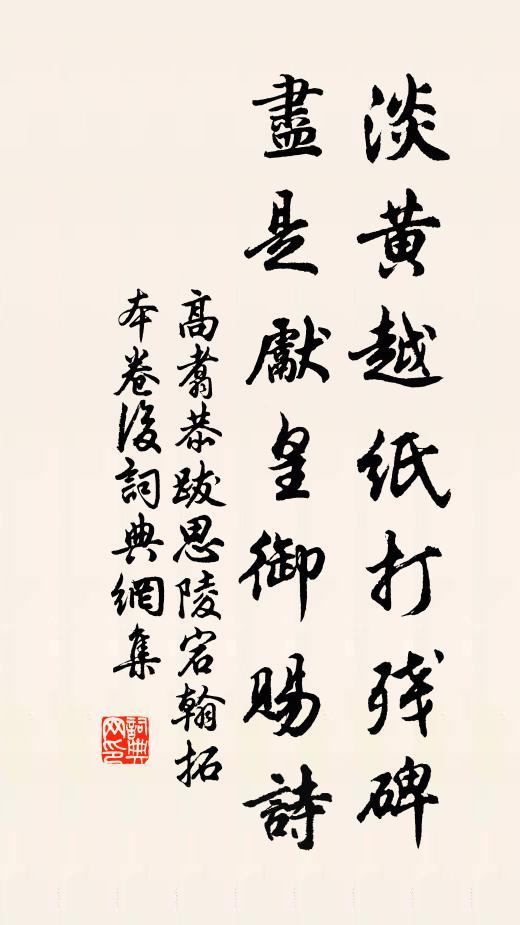 淡黄越紙打殘碑
盡是獻皇御賜詩
高翥恭跋思陵宸翰拓
本卷後詞典網集
詞典網印